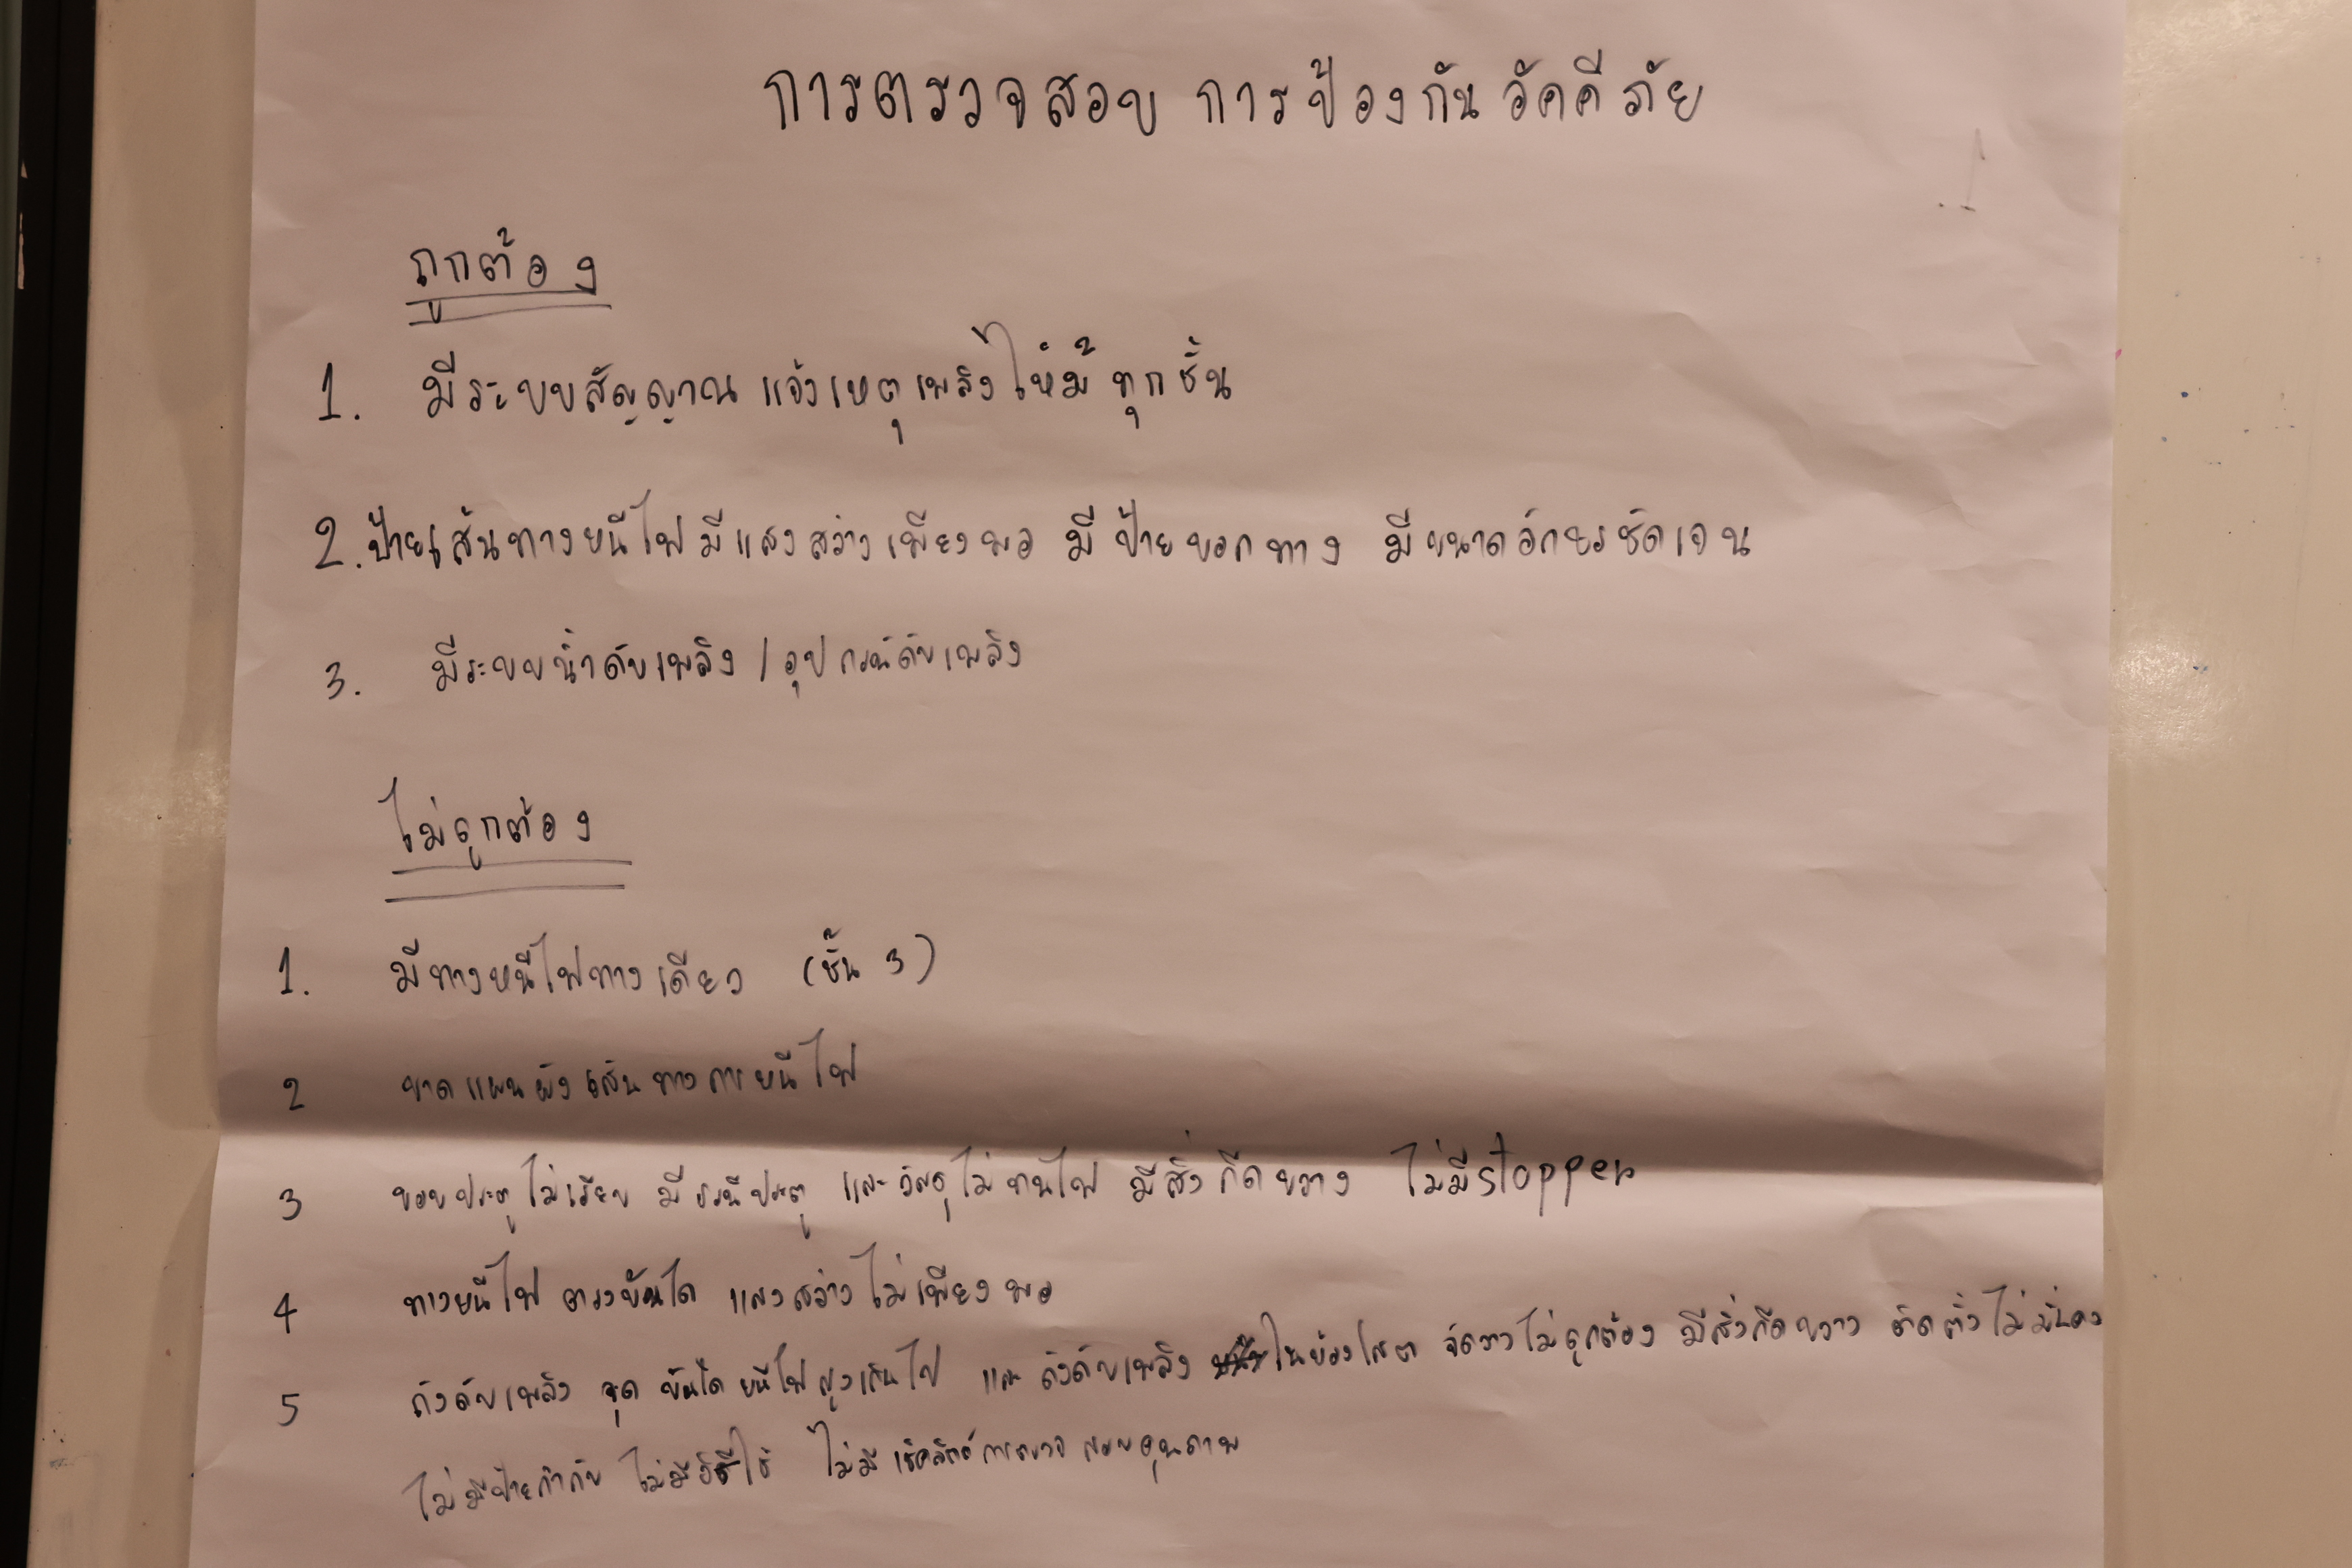 การตรวจสอบ การป้องกัน อัคคีภัย
ถูกต้อง
1. มีระบบสัญญาณ แจ้งเหตุเพลิงไหม้ ทุกชั้น
2. ป้ายเส้นทางหนีไฟมีแสงสว่างเพียงพอ มีป้ายบอกทาง มีขนาดอักษรชัดเจน
3. มีระบบน้ำดับเพลิง / อุปกรณ์ดับเพลิง
ไม่ถูกต้อง
1. มีทางหนีไฟทางเดียว (ชั้น 3)
2 ขาดแผนผังเส้นทางการหนีไฟ
3 ขอบประตูไม่เรียบ มีธรณีประตู และวัสดุไม่ทนไฟ มีสิ่งกีดขวาง ไม่มีstopper
4 ทางหนีไฟ ตรงบันได แสงสว่างไม่เพียงพอ
5 ถังดับเพลิง จุด บันได หนีไฟสูงเกินไป และ ถังดับเพลิง ในห้องโสต จัดวางไม่ถูกต้อง มีสิ่งกีดขวาง ติดตั้งไม่มั่นคง
ไม่มีป้ายกำกับ ไม่มีวิธีใช้ ไม่มี เช็คลิสต์การตรวจ สอบคุณภาพ